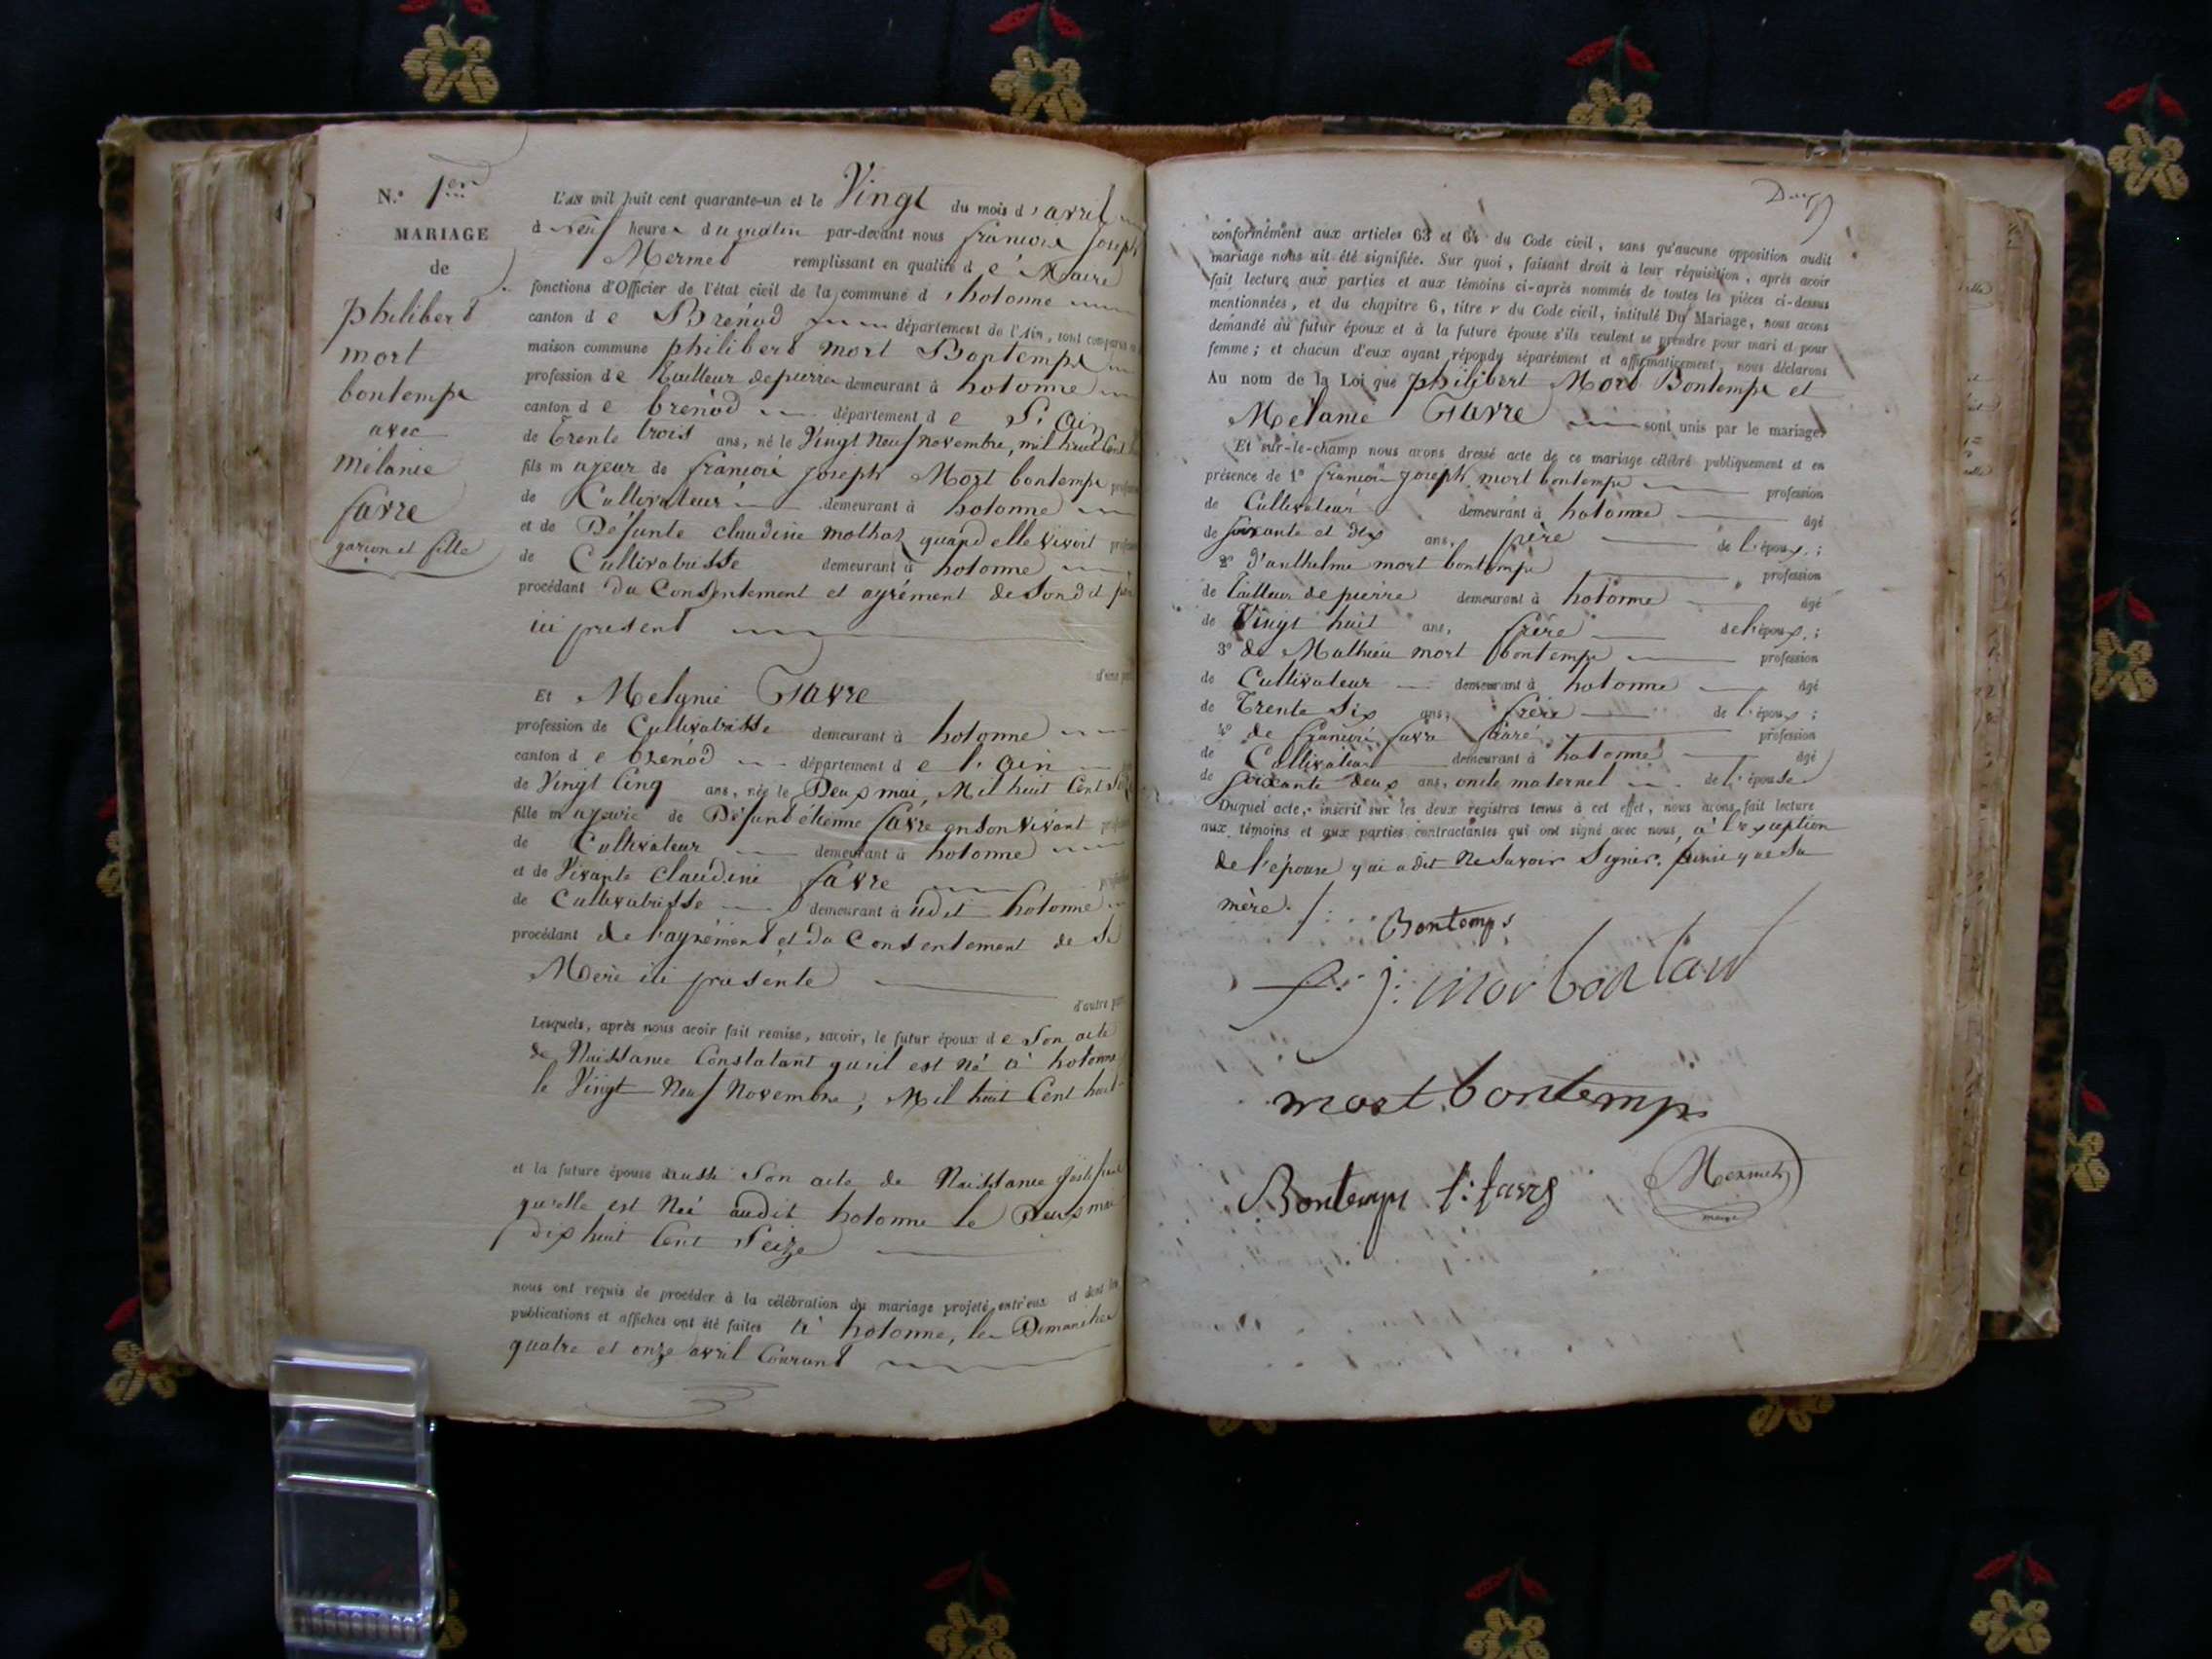 N.º 1er
MARIAGE
de
philibert
mort
bontemps
avec
mélanie
favre
garçon et fille
L'an mil huit cent quarante-un et le Vingt du mois d'avril
à neuf heures du matin par-devant nous françois joseph
Mermet remplissant en qualité de Maire
fonctions d'Officier de l'état civil de la commune d'hotonne
canton de Brénod département de l'Ain, sont comparus
maison commune philibert mort Bontemps
profession de tailleur de pierre demeurant à hotonne
canton de brénod département de l'Ain
de Trente trois ans, né le Vingt Neuf novembre, mil huit Cent
fils majeur de françois joseph Mort bontemps
de Cultivateur demeurant à hotonne
et de Défunte claudine molhaz quand elle vivoit
de Cultivatrisse demeurant à hotonne
procédant du Consentement et agrément de Son dit père
ici présent
Et Melanie Favre
profession de Cultivatrisse demeurant à hotonne
canton de brénod département de l'ain
de Vingt Cinq ans, née le Deux mai, Mil huit Cent Seize
fille majeure de Défunt étienne favre en son vivant
de Cultivateur demeurant à hotonne
et de Vivante claudine favre
de Cultivatrisse demeurant à udit hotonne
procédant de l'agrément et du Consentement de Sa
Mère ici présente
d'autre part
Lesquels, après nous avoir fait remise, savoir, le futur époux de Son acte
de Naissance Constatant qu'il est né à hotonne
le Vingt Neuf Novembre, Mil huit Cent huit
et la future épouse aussi Son acte de Naissance
qu'elle est Née audit hotonne le Deux mai
dix huit Cent Seize
nous ont requis de procéder à la célébration du mariage projeté entr'eux et dont les
publications et affiches ont été faites à hotonne, les Dimanches
quatre et onze avril Courant
conformément aux articles 63 et 64 du Code civil, sans qu'aucune opposition audit
mariage nous ait été signifiée. Sur quoi, faisant droit à leur réquisition, après avoir
fait lecture aux parties et aux témoins ci-après nommés de toutes les pièces ci-dessus
mentionnées, et du chapitre 6, titre V du Code civil, intitulé Du Mariage, nous avons
demandé au futur époux et à la future épouse s'ils veulent se prendre pour mari et pour
femme ; et chacun d'eux ayant répondu séparément et affirmativement, nous déclarons
Au nom de la Loi que philibert Mort Bontemps et
Mélanie Favre sont unis par le mariage.
Et sur-le-champ nous avons dressé acte de ce mariage célébré publiquement et en
présence de 1º françois joseph mort bontemps profession
de Cultivateur demeurant à hotonne âgé
de soixante et dix ans, père de l'époux ;
2º d'anthelme mort bontemps profession
de tailleur de pierre demeurant à hotonne âgé
de Vingt huit ans, frère de l'époux ;
3º de Mathieu mort bontemps profession
de Cultivateur demeurant à hotonne âgé
de Trente Six ans, frère de l'époux ;
4º de françois favre profession
de Cultivateur demeurant à hotonne âgé
de soixante deux ans, oncle maternel de l'épouse
Duquel acte, inscrit sur les deux registres tenus à cet effet, nous avons fait lecture
aux témoins et aux parties contractantes qui ont signé avec nous, à l'exception
de l'épouse qui a dit Ne Savoir Signer. que Sa
mère.
Bontemps
f: j: mor bontau
mort bontemps
Bontemps f: favre Mermet
maire